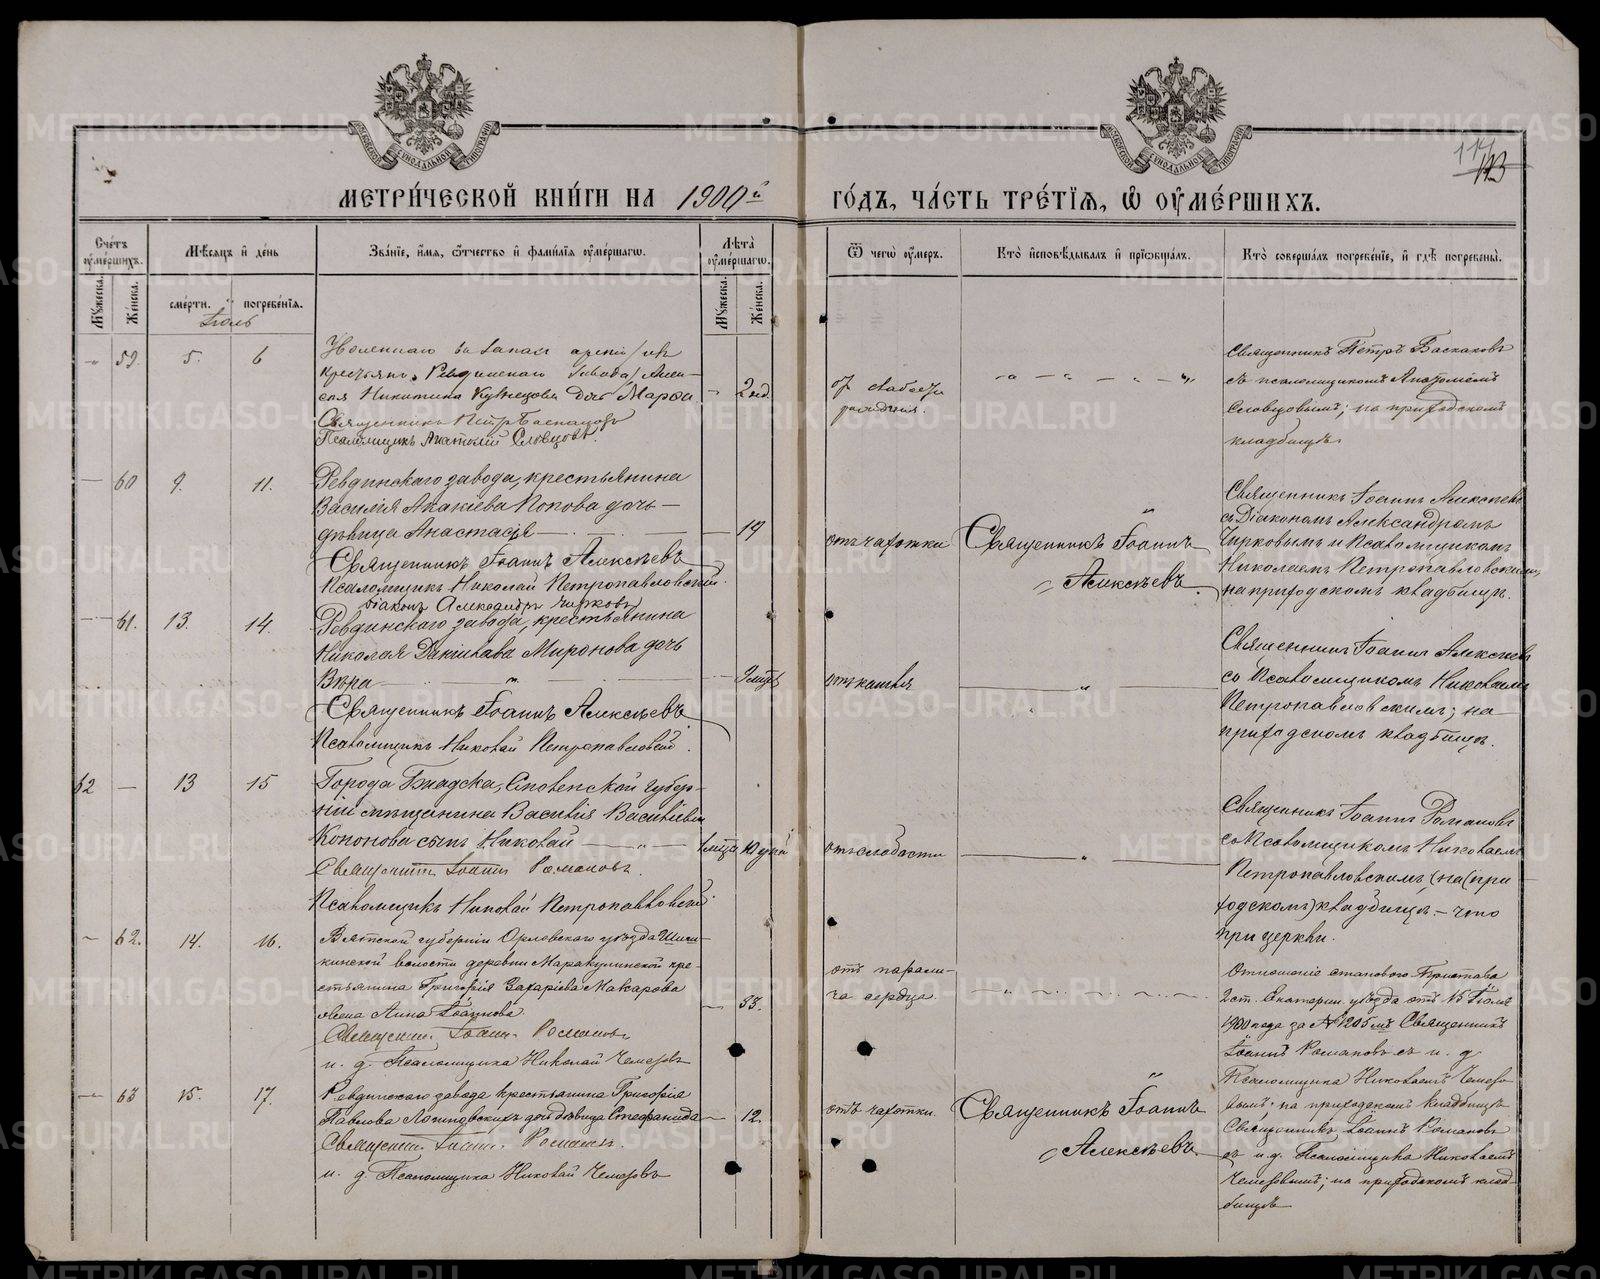 МЕТРИ́ЧЕСКОЙ КНИ́ГИ НА 1900й ГО́ДЪ, ЧА́СТЬ ТРЕ́ТЇЯ, Ѿ ОУМЕ́РШИХЪ.
113
Сче́тъ оуме́ршихъ.
Му́жеска.
Же́нска.
Мѣ́сяцъ и де́нь
сме́рти.
погребе́нїя.
Іюль
Зва́нїе, и́мя, ѻ́тчество и фами́лїя оуме́ршагѡ.
Лѣ́та оуме́ршагѡ.
Му́жеска.
Же́нска.
Ѿ чегѡ̀ оу́меръ.
Кто̀ и҆сповѣ́дывалъ и прїѡбща́лъ.
Кто̀ соверша́лъ погребе́нїе, и гдѣ̀ погребены̀.
59. 5. 6
Ревдинскаго завода
Никитина Кузнецова дочь Марѳа
Священникъ Петръ Баскаковъ
Псаломщикъ Анатолій Словцовъ.
2 нед.
отъ слабости
рожденія.
Священникъ Петръ Баскаковъ
съ псаломщикомъ Анатоліемъ
Словцовымъ; на приходскомъ
кладбищѣ.
— 60 9. 11.
Ревдинскаго завода, крестьянина
Василія Акакіева Попова дочь —
дѣвица Анастасія —
Священникъ Іоаннъ Алексѣевъ
Псаломщикъ Николай Петропавловскій.
Діаконъ Александръ Чирковъ
19
отъ чахотки
Священникъ Іоаннъ
Алексѣевъ.
Священникъ Іоаннъ Алексѣевъ
съ Діакономъ Александромъ
Чирковымъ и Псаломщикомъ
Николаемъ Петропавловскимъ,
на приходскомъ кладбищѣ.
— 61. 13. 14.
Ревдинскаго завода, крестьянина
Николая Миронова дочь
Вѣра
мѣц
отъ кашля
Священникъ Іоаннъ Алексѣевъ
Псаломщикъ Николай Петропавловскій.
Священникъ Іоаннъ Алексѣевъ
со Псаломщикомъ Николаемъ
Петропавловскимъ; на
приходскомъ кладбищѣ.
62 — 13 15
Города губер-
ніи мѣщанина Василія Васильева
Кононова сынъ Николай
Священникъ Іоаннъ Романовъ.
Псаломщикъ Николай Петропавловскій.
отъ слабости
Священникъ Іоаннъ Романовъ
со Псаломщикомъ Николаемъ
Петропавловскимъ, (на (при
ходскомъ) кладбищѣ. — что
при церкви.
— 62. 14. 16.
Вятской губерніи Орловскаго уѣзда
кинской волости деревни Маракулинской кре-
стьянина Григорія Захаріева Макарова
жена Анна Іоаннова
Священникъ Іоаннъ Романовъ
и. д. Псаломщика Николай Чемезовъ
53.
отъ парали-
ча сердца
Отношеніе становаго Пристава
2 ст. Екатерин. уѣзда отъ 15 Іюля
1900 года за № 1205 мъ Священникъ
Іоаннъ Романовъ съ и. д.
Псаломщика Николаемъ Чемезо-
вымъ; на приходскомъ кладбищѣ
— 63 15. 17.
Ревдинскаго завода крестьянина Григорія
Павлова Логиновскихъ дочь дѣвица Стефанида
Священникъ Іоаннъ Романовъ.
и. д. Псаломщика Николай Чемезовъ
12.
отъ чахотки.
Священникъ Іоаннъ
Алексѣевъ.
Священникъ Іоаннъ Романовъ
съ и. д. Псаломщика Николаемъ
Чемезовымъ; на приходскомъ клад-
бищѣ
METRIKI.GASO-URAL.RU